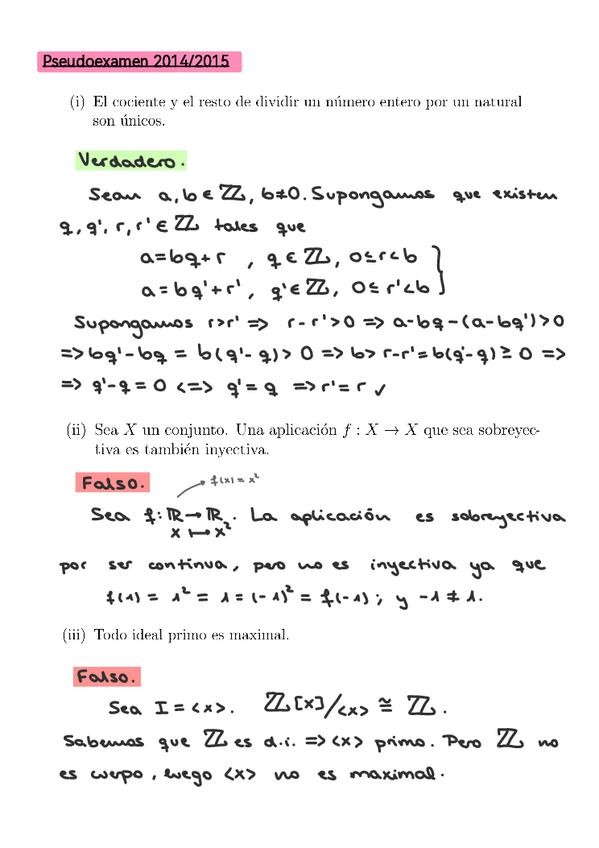 Pseudoexamen 2014/2015
(i) El cociente y el resto de dividir un número entero por un natural
son únicos.
Verdadero.
Sean a, b ∈ ℤ, b≠0. Supongamos que existen
q, q', r, r' ∈ ℤ tales que
a = bq + r , q ∈ ℤ, 0 ≤ r < b
a = bq' + r' , q' ∈ ℤ, 0 ≤ r' < b }
Supongamos r > r' => r - r' > 0 => a - bq - (a - bq') > 0
=> bq' - bq = b(q' - q) > 0 => b > r - r' = b(q' - q) ≥ 0 =>
=> q' - q = 0 <=> q' = q => r' = r ✓
(ii) Sea X un conjunto. Una aplicación f : X → X que sea sobreyec-
tiva es también inyectiva.
Falso.
f(x) = x²
Sea f: ℝ → ℝ. La aplicación es sobreyectiva
x ↦ x²
por ser continua, pero no es inyectiva ya que
f(1) = 1² = 1 = (-1)² = f(-1); y -1 ≠ 1.
(iii) Todo ideal primo es maximal.
Falso.
Sea I = <x>. ℤ[x]/<x> ≅ ℤ.
Sabemos que ℤ es d.i. => <x> primo. Pero ℤ no
es cuerpo, luego <x> no es maximal.